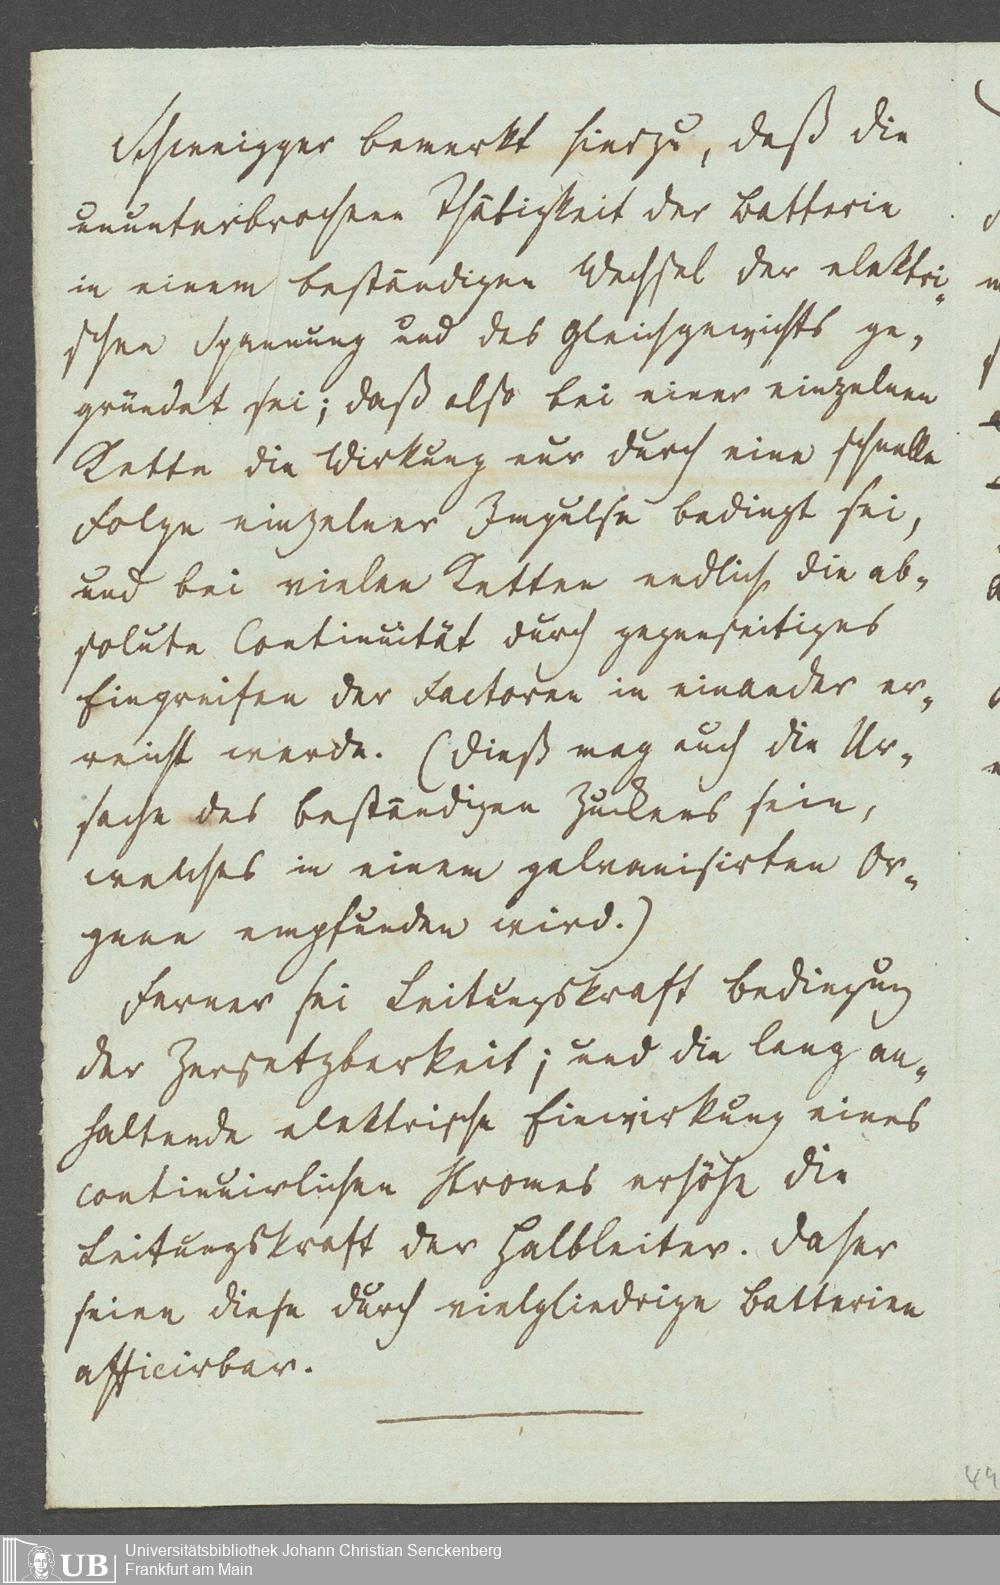 Schweigger bemerkt hierzu, daß die
ununterbrochene Thätigkeit der Batterie
in einem beständigen Wechsel der elektri-
schen Spannung und des Gleichgewichts ge-
gründet sei; daß also bei einer einzelnen
Kette die Wirkung nur durch eine schnelle
Folge einzelner Impulse bedingt sei,
und bei vielen Ketten endlich die ab-
solute Continuität durch gegenseitiges
Eingreifen der Factoren in einander er-
reicht werde. (Dieß mag auch die Ur-
sache des beständigen Zuckens sein,
welches in einem galvanisirten Or-
gane empfunden wird.)
Ferner sei Leitungskraft Bedingung
der Zersetzbarkeit; und die lang an-
haltende elektrische Einwirkung eines
continuirlichen Stromes erhöhe die
Leitungskraft der Halbleiter. Daher
seien diese durch vielgliedrige Batterien
afficirbar.
49
UB Universitätsbibliothek Johann Christian Senckenberg
Frankfurt am Main